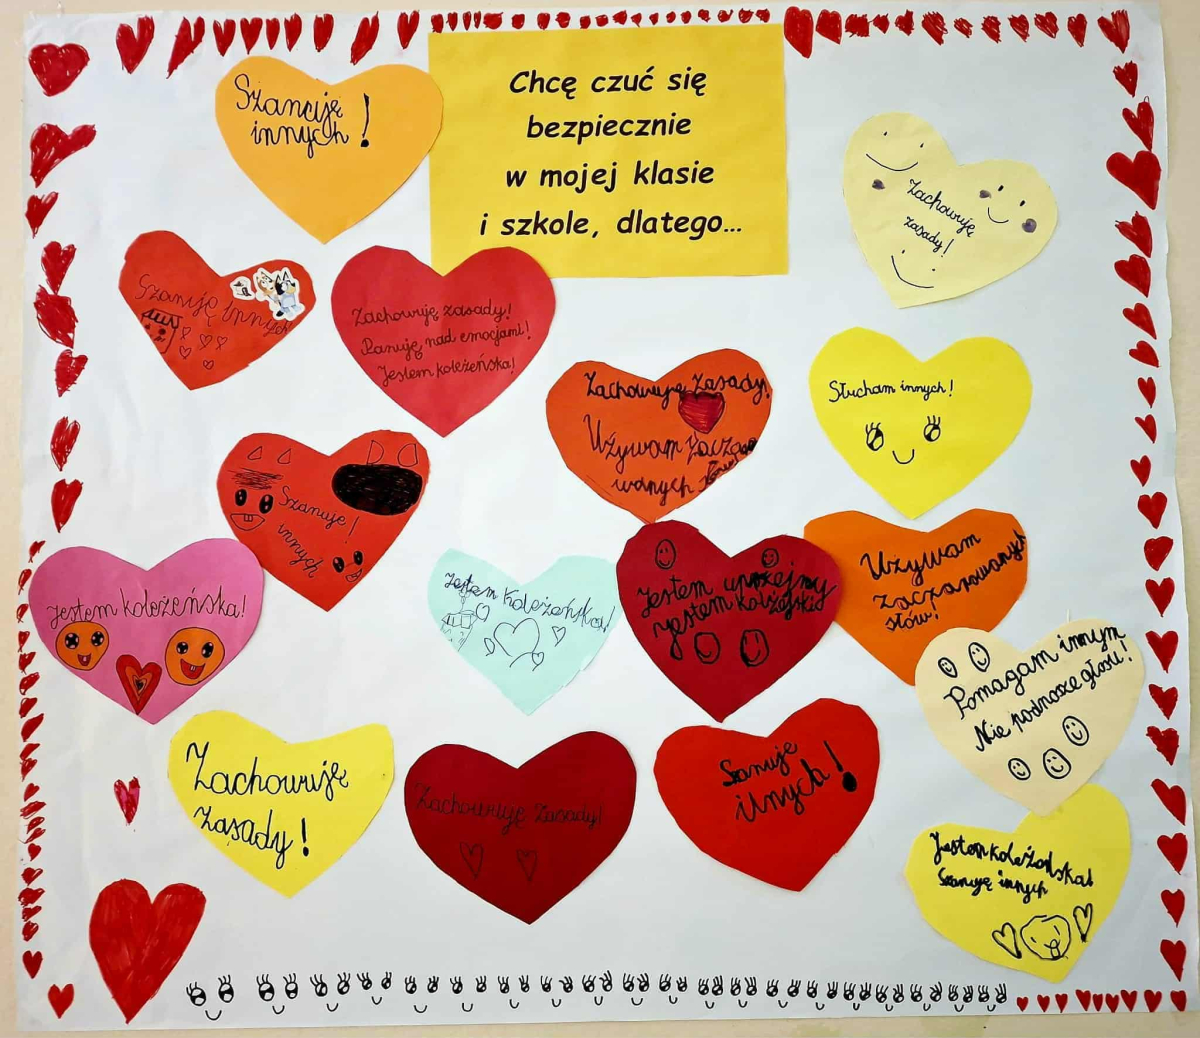 Chcę czuć się
bezpiecznie
w mojej klasie
i szkole, dlatego...
Szanuję
innych!
Zachowuję
zasady!
Szanuję innych
Zachowuję zasady!
Panuję nad emocjami!
Jestem koleżeńska!
Zachowuję zasady!
Używam zacza
wanych
Słucham innych!
Szanuje!
innych
Jestem koleżeńska!
Jestem koleżeńska!
Jestem uprzejmy
jestem koleżejski
Używam
zaczarowanych
słów!
Pomagam innym
Nie podnosze głosu!
Zachowuję
zasady!
Zachowuję zasady!
Szanuje
innych!
Jestem koleżeńska!
Szanuję innych